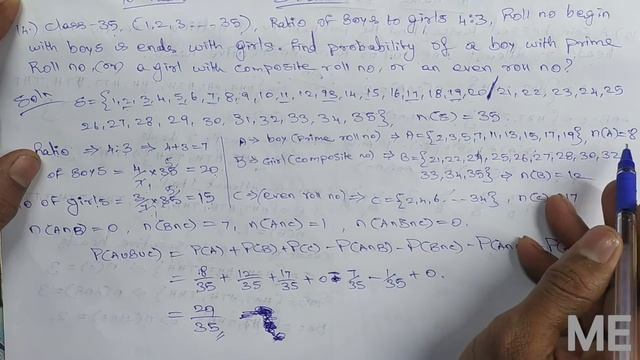 14) Class-35, (1,2,3, --- 35), Ratio of Boys to girls 4:3, Roll no begin
with boys & ends with girls. Find probability of a boy with prime
Roll no, (or) a girl with composite roll no, or an even roll no?
Solⁿ S={1,2,3,4,5,6,7,8,9,10,11,12,13,14,15,16,17,18,19,20/21,22,23,24,25
26,27,28,29,30,31,32,33,34,35}, n(S)=35
Ratio ⇒ 4:3 ⇒ 4+3=7
of Boys = 4/7 × 35 = 20
of girls = 3/7 × 35 = 15
A → boy (Prime roll no) ⇒ A={2,3,5,7,11,13,15,17,19}, n(A)=8
B → Girl (Composite no) ⇒ B={21,22,24,25,26,27,28,30,32
33,34,35} ⇒ n(B)=12
C → (even roll no) ⇒ C={2,4,6, --- 34}, 17
n(A∩B)=0, n(B∩C)=7, n(A∩C)=1, n(A∩B∩C)=0.
P(A∪B∪C) = P(A)+P(B)+P(C)-P(A∩B)-P(B∩C)-
= 8/35 + 12/35 + 17/35 + 0 - 7/35 - 1/35 + 0.
= 29/35
ME